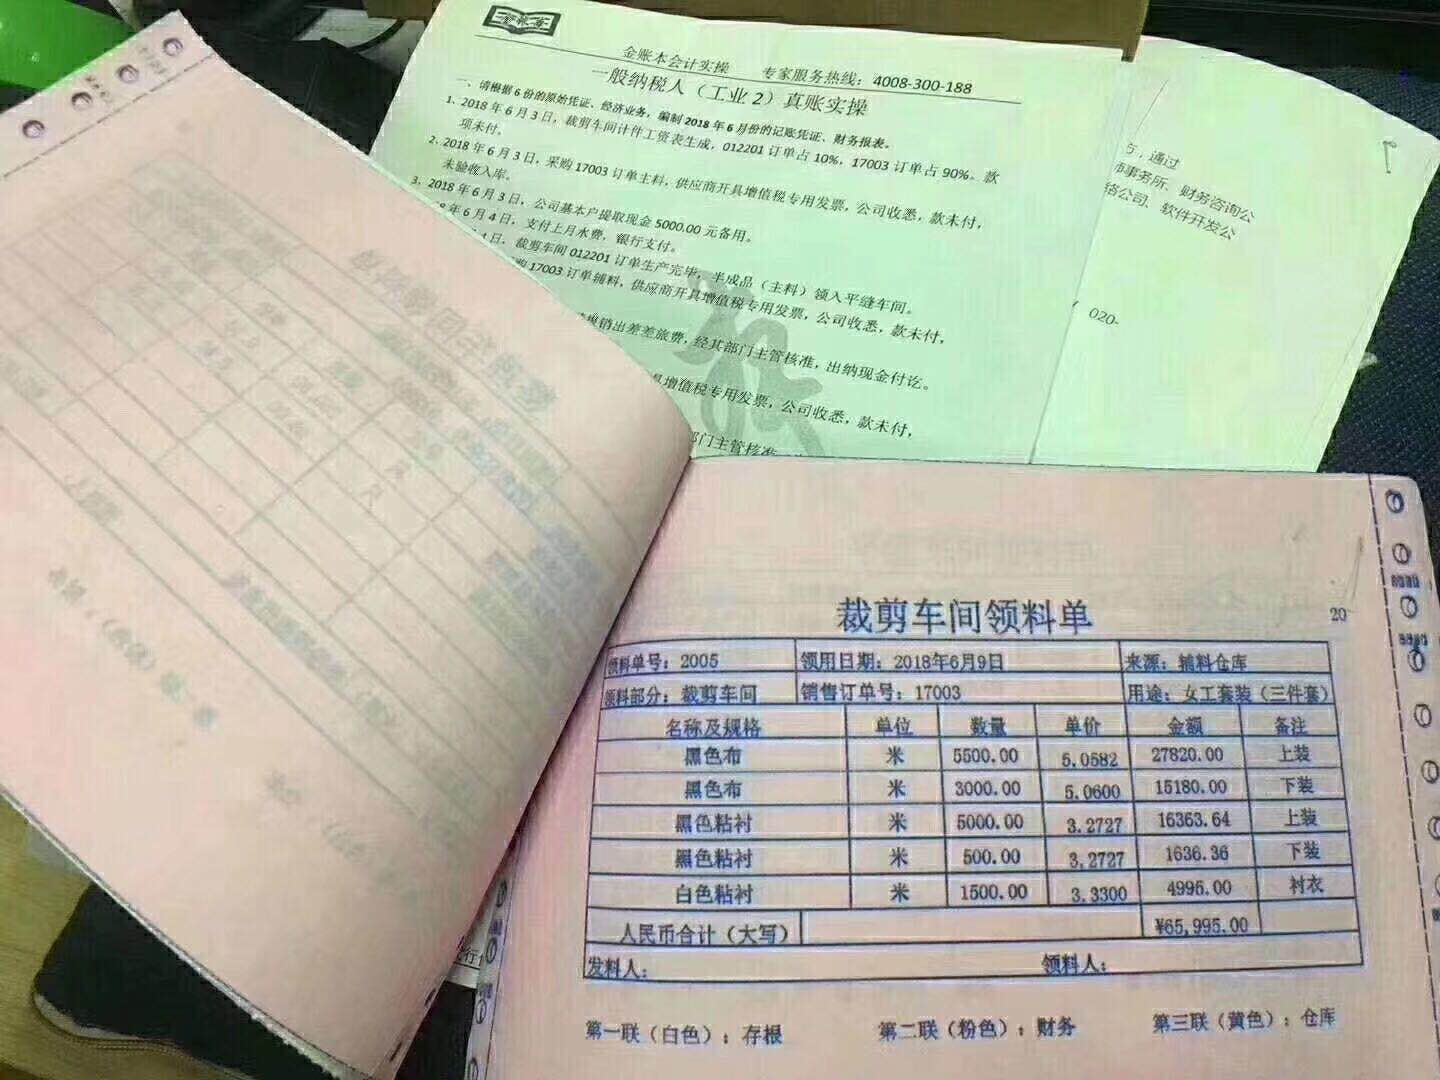 金账本会计实操 专家服务热线：4008-300-188
一般纳税人（工业2）真账实操
一、请根据6份的原始凭证、经济业务，编制2018年6月份的记账凭证、财务报表。
1. 2018年6月3日，裁剪车间计件工资表生成，012201订单占10%，17003订单占90%。款
项未付。
2. 2018年6月3日，采购17003订单主料，供应商开具增值税专用发票，公司收悉，款未付，
未验收入库。
3. 2018年6月3日，公司基本户提取现金5000.00元备用。
年6月4日，支付上月水费，银行支付。
4日，裁剪车间012201订单生产完毕，半成品（主料）领入平缝车间。
购17003订单辅料，供应商开具增值税专用发票，公司收悉，款未付，
销出差差旅费，经其部门主管核准，出纳现金付讫。
具增值税专用发票，公司收悉，款未付，
部门主管核准
方，通过
师事务所、财务咨询公
络公司、软件开发公
020-
裁剪车间领料单
20
领料单号：2005 领用日期：2018年6月9日 来源：辅料仓库
领料部分：裁剪车间 销售订单号：17003 用途：女工套装（三件套）
名称及规格 单位 数量 单价 金额 备注
黑色布 米 5500.00 5.0582 27820.00 上装
黑色布 米 3000.00 5.0600 15180.00 下装
黑色粘衬 米 5000.00 3.2727 16363.64 上装
黑色粘衬 米 500.00 3.2727 1636.36 下装
白色粘衬 米 1500.00 3.3300 4995.00 衬衣
人民币合计（大写） ¥65,995.00
发料人： 领料人：
第一联（白色）：存根 第二联（粉色）：财务 第三联（黄色）：仓库